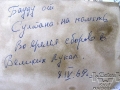 Бадду от
Султана на память
Во время сборов в
Великих Луках
9.IV.69г.